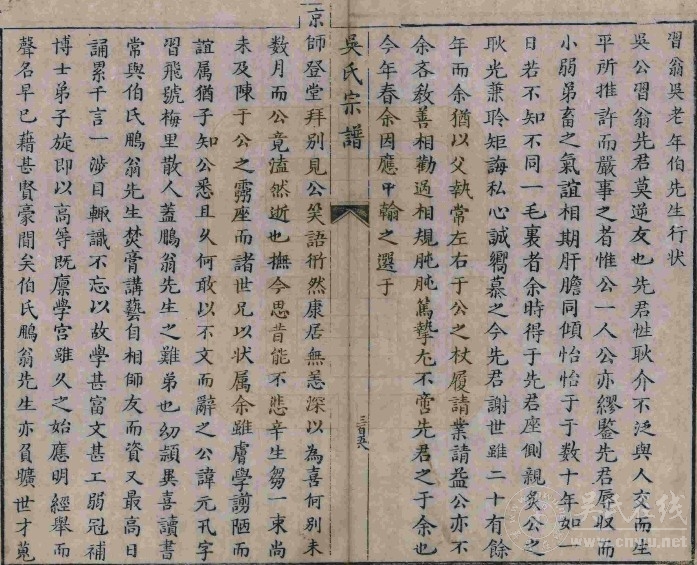 習翁吳老年伯先生行状
吳公習翁先君莫逆友也先君性耿介不泛與人交而生
平所推許而嚴事之者惟公一人公亦繆鍳先君辱収而
小弱弟畜之氣誼相期肝膽同傾怡怡于于数十年如一
日若不知不同一毛裏者余時得于先君座側親炙公之
耿光蕭聆矩誨私心誠嚮慕之今先君謝世雖二十有餘
年而余猶以父執常左右于公之杖履請業請益公亦不
余吝教善相勸過相規肫肫篤摯尢不啻先君之于余也
今年春余因應中翰之選于
吳氏宗譜
京師登堂拜別見公笑語衎然康居無恙深以為喜何別未
数月而公竟溘然逝也撫今思昔能不悲辛生蒭一束尚
未及陳于公之靈座而諸世兄以状属余雖膚學謭陋而
誼属猶子知公悉且久何敢以不文而辭之公諱元孔字
習飛號梅里散人蓋鵬翁先生之難弟也幼頴異喜讀書
常與伯氏鵬翁先生焚膏講藝自相師友而資又最高日
誦累千言一渉目輙識不忘以故學甚富文甚工弱冠補
博士弟子旋即以高等既廪學宫雖久之始應明經舉而
聲名早已藉甚賢豪間矣伯氏鵬翁先生亦負曠世才蒐
吳氏在线
www.cnwu.net